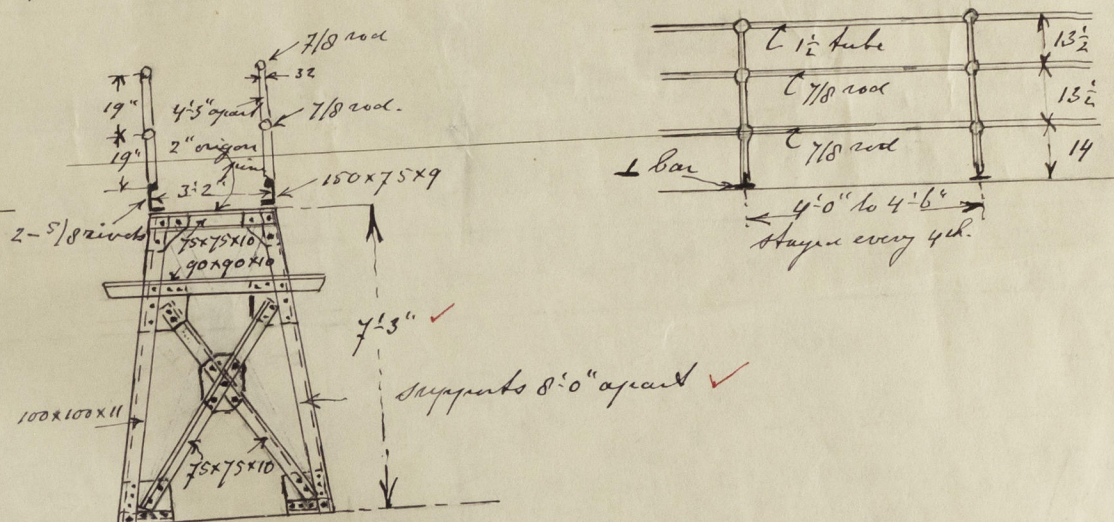 7/8 rod
32
19"
4'-3" apart
7/8 rod.
19"
2" origon
pine
3'-2"
150 x 75 x 9
2 - 5/8 rivets
75x75x10
90x90x10
7'-3" ✓
supports 8'-0" apart ✓
100x100x11
75x75x10
1½ tube
13½
7/8 rod
13½
7/8 rod
14
⊥ bar
4'-0" to 4'-6"
stayed every 4th.